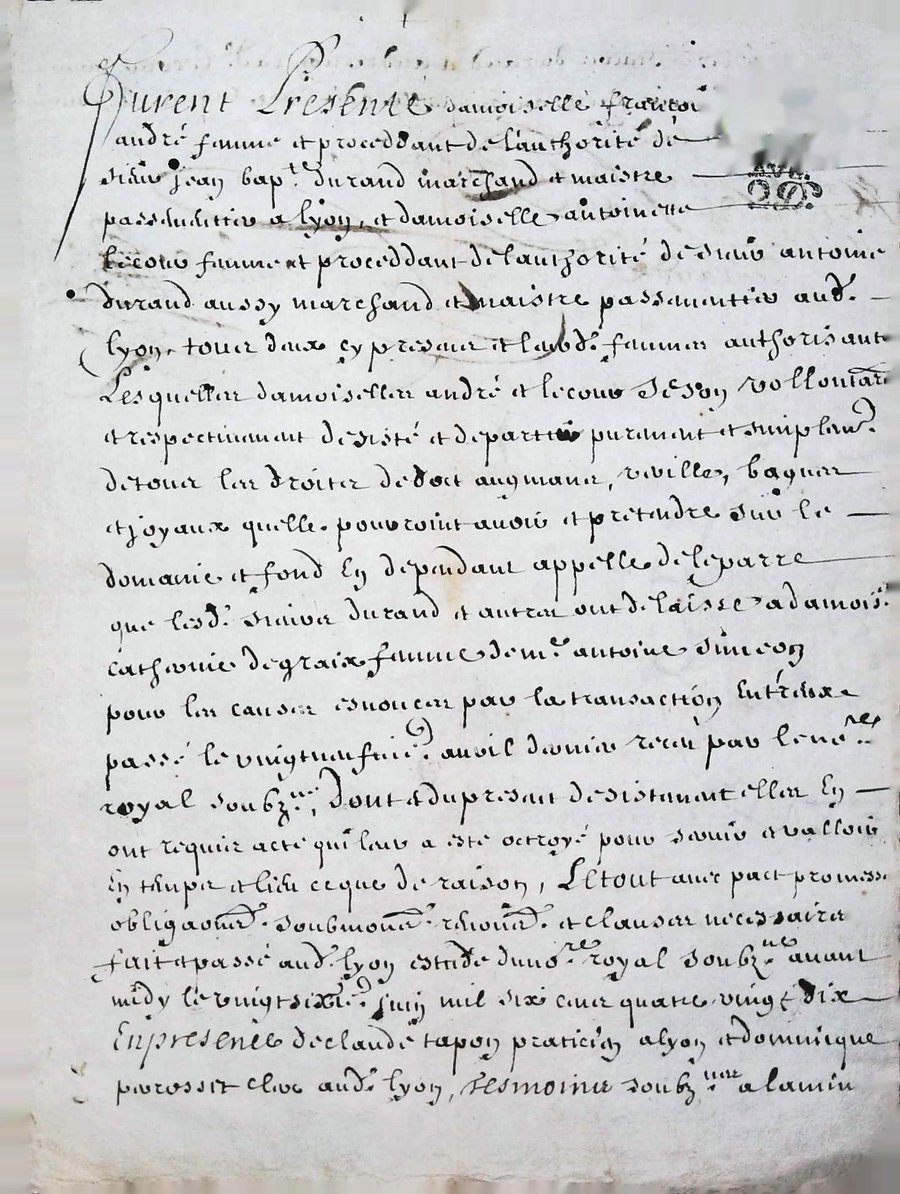 Furent Presente damoiselle francoi
andré femme et proceddant de l'authorité de
sieur jean bapte durand marchand et maistre
passementier a lyon, et damoiselle antoinette
lecour femme et proceddant de lauthorité de sieur antoine
durand aussy marchand et maistre passementier aud.
lyon, tous deux cy presens et leurd. femmes authorisant
Lesquelles damoiselles andré et lecour se son vollontaire
et respectivement desisté et departies purement et simplemt.
de tous les droites de dot augmans, bagues
et joyaux quelle pouroint avoir et pretendre sur le
domaine et fond En dependant appelle de leparre
que lesd. sieurs durand et autres ont delaissé a damois.
catherine degraix femme de me. antoine simeon
pour les causes esnoncees par la transaction Entreux
passé le vingtneufvie. avril dernier receu par le nore.
royal soubzne, Dont et du presant desistement elles En
ont requier acte qui leur a este octroyé pour servir et valloir
En temps et lieu ce que de raison, Le tout avec pact promesse
obligaons. soubmons. renons. et clauses necessaire
fait et passé aud. lyon estude du nore. royal soubzne avant
midy le vingtsixie. juin mil six cens quatre vingt dix
En presence de claude tapon praticien a lyon et dominique
perosset clerc aud. lyon, tesmoins soubznes a la min